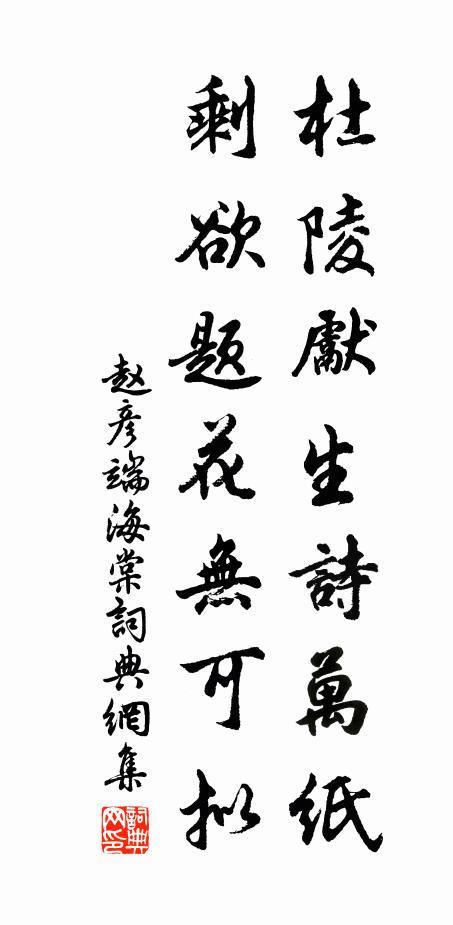 杜陵獻生詩萬紙
剩欲題花無可拟
赵彦端海棠詞典網集
詞典
网印